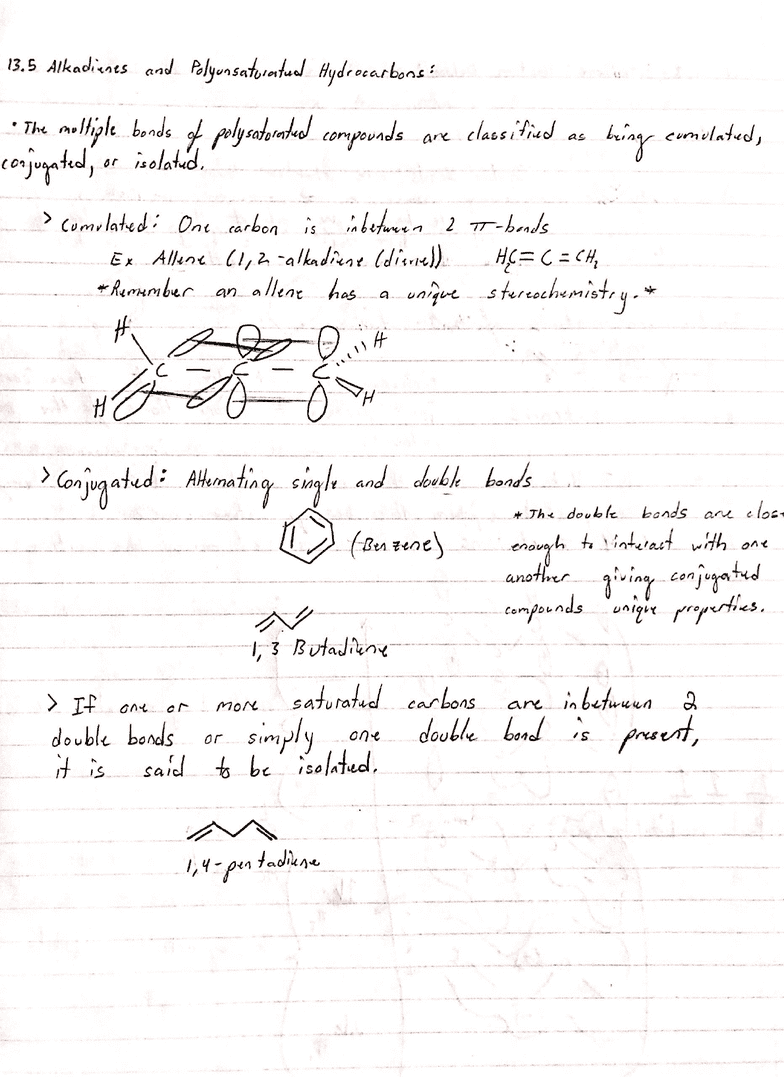 13.5 Alkadienes and Polyunsaturated Hydrocarbons:
• The multiple bonds of polysaturated compounds are classified as being cumulated,
conjugated, or isolated.
> Cumulated: One carbon is inbetween 2 π-bonds
Ex Allene (1,2-alkadiene (diene)) H₂C=C=CH₂
*Remember an allene has a unique stereochemistry.*
H H
C – C – C
H H
> Conjugated: Alternating single and double bonds
(Benzene)
* The double bonds are close
enough to interact with one
another giving conjugated
compounds unique properties.
1,3 Butadiene
> If one or more saturated carbons are inbetween 2
double bonds or simply one double bond is present,
it is said to be isolated.
1,4-pentadiene